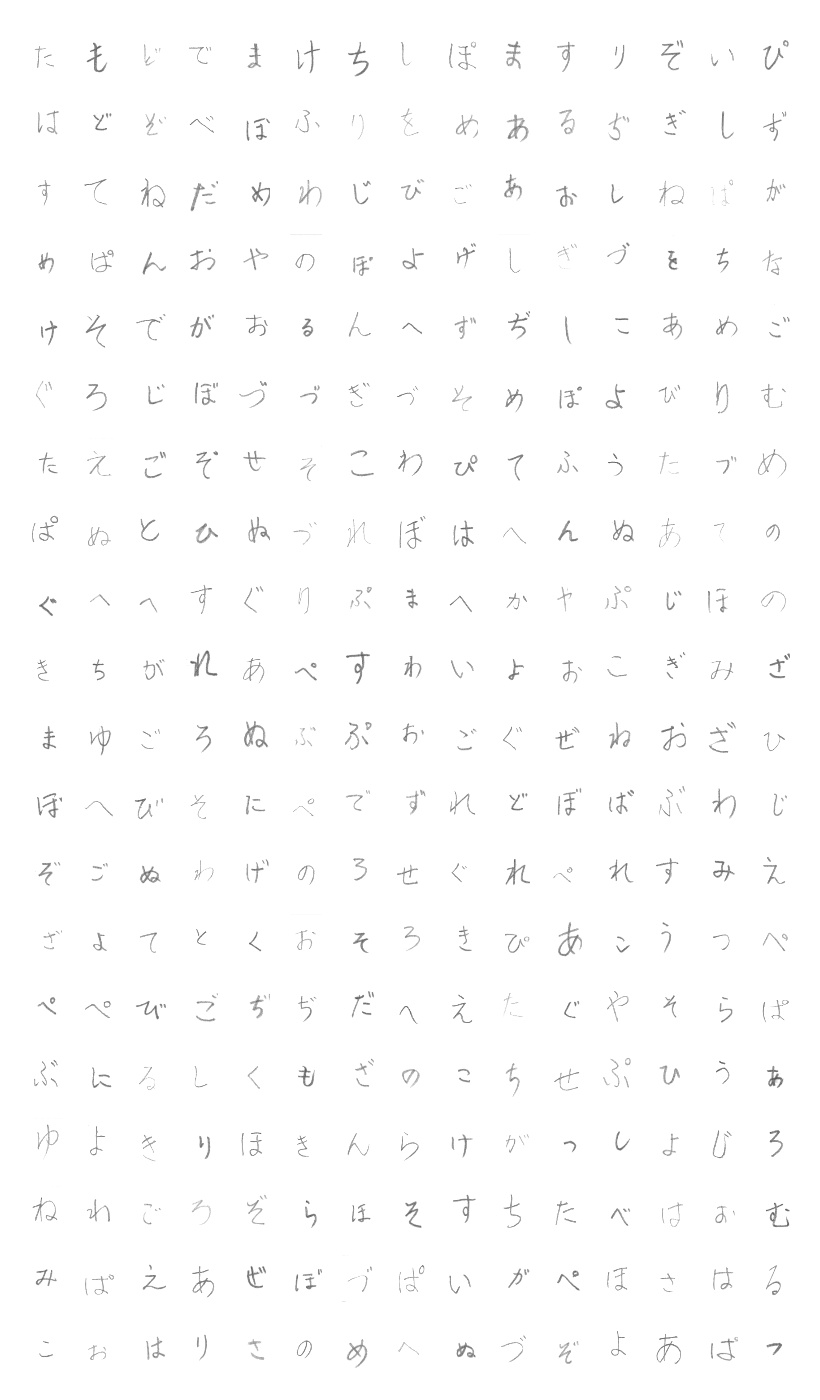 たもどでまけちしぽますりぞいぴ
はどぞべぼふりをめあるぢぎしず
すてねだめわじびごあおしねぱが
めぱんおやのぽよげしぎづをちな
けそでがおるんへずぢしこあめご
ぐろじぼづづぎづそめぽよびりむ
たえごぞせそこわぴてふうたづめ
ぱぬとひぬづれぼはへんぬあての
ぐへへすぐりぷまへかやぷじほの
きちがれあぺすわいよおこぎみざ
まゆごろぬぶぷおごぐぜねおざひ
ぼへびそたにぺでずれどぼばぶわじ
ぞごぬわげのろせぐれぺれすみえ
ざよてとくおそろきぴあこうつぺ
ぺぺびごぢぢだへえたぐやそらぱ
ぶにるしくもざのこちせぷひうあ
ゆよきりほきんらけがつしよじろ
ねわごろぞらほそすちたべはおむ
みぱえあぜぼづぱいがぺほさはる
こおはりさのめへぬづぞよあぱつ